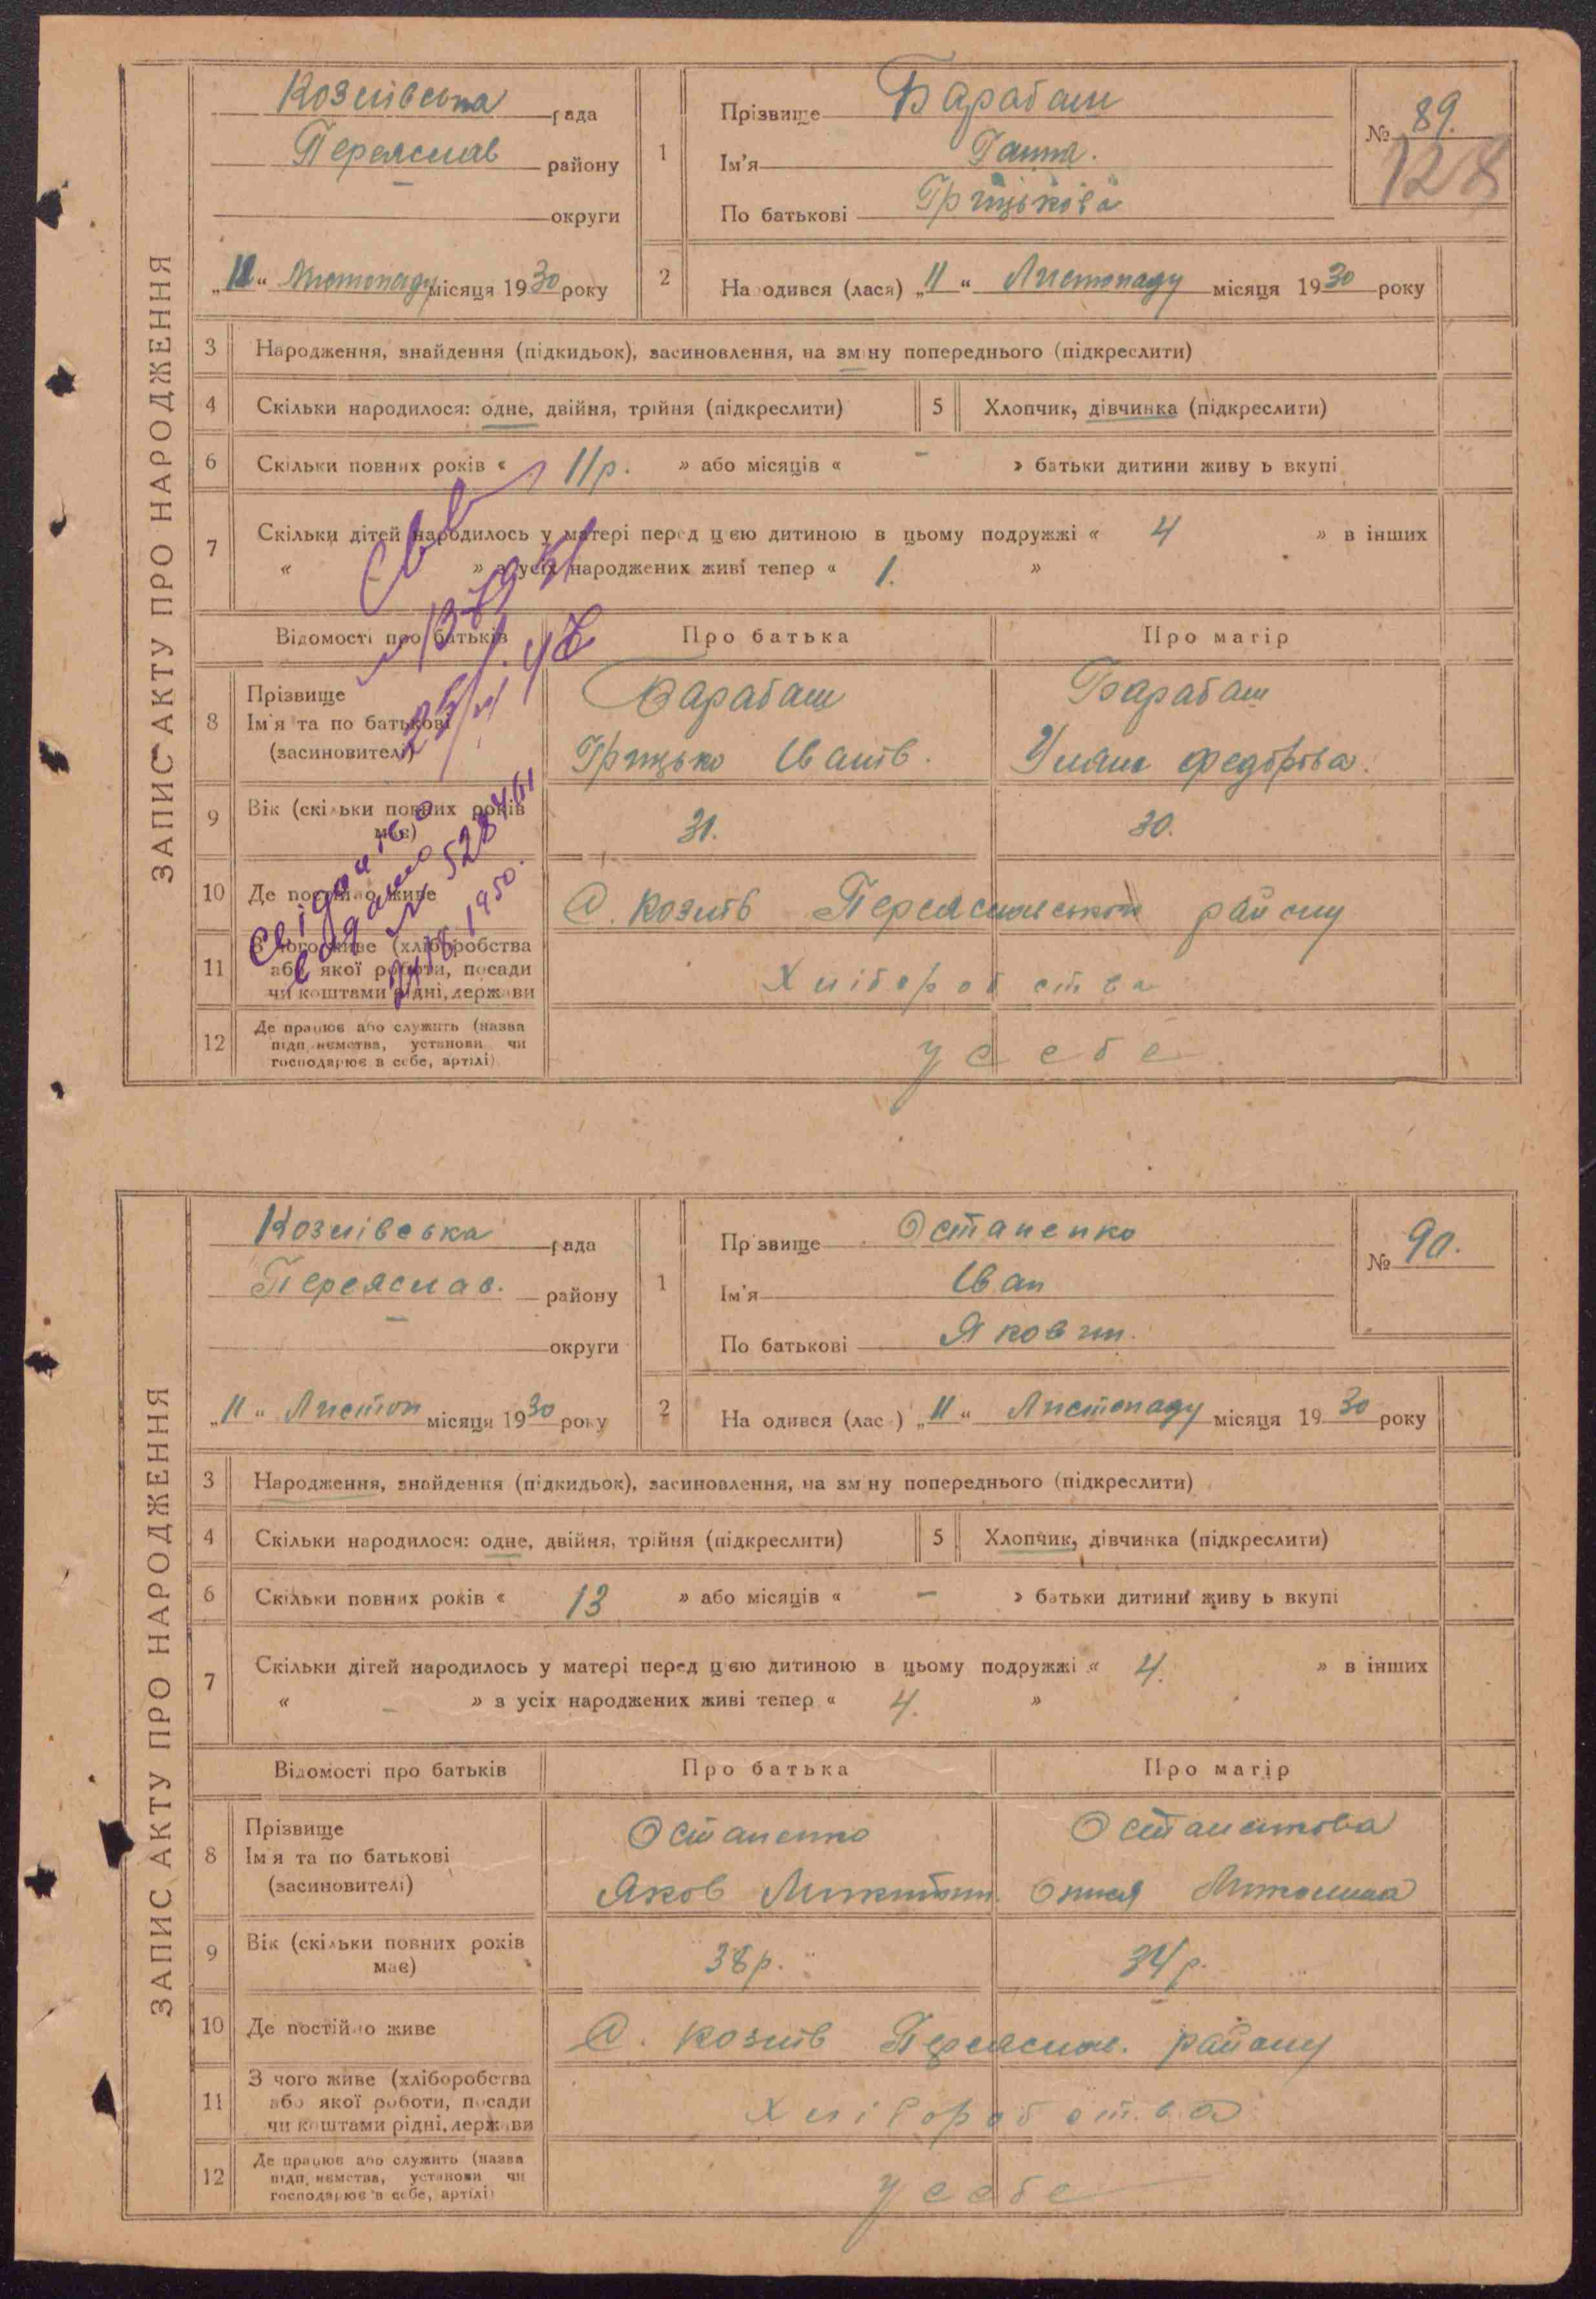 ЗАПИС АКТУ ПРО НАРОДЖЕННЯ
Козлівська рада
Переяслав району
округи
„11“ Листопаду місяця 1930 року
1
Прізвище Барабаш
Ім'я Ганна.
По батькові Грицькова
№ 89.
128
2
Народився (лася) „11“ Листопаду місяця 1930 року
3 Народження, знайдення (підкидьок), засиновлення, на зміну попереднього (підкреслити)
4 Скільки народилося: одне, двійня, трійня (підкреслити)
5 Хлопчик, дівчинка (підкреслити)
6 Скільки повних років « 11р. » або місяців « - » батьки дитини живуть вкупі
7 Скільки дітей народилось у матері перед цією дитиною в цьому подружжі « 4 » в інших
« - » з усіх народжених живі тепер « 1. »
Відомості про батьків
Про батька
Про матір
8 Прізвище
Ім'я та по батькові
(засиновителі)
Барабаш
Грицько Іванів.
Барабаш
Уляна Федорова.
9 Вік (скільки повних років
має)
31.
30.
10 Де постійно живе
С. Козлів Переяславського району
11 З чого живе (хліборобства
або якої роботи, посади
чи коштами рідні, держави
Хліборобства
12 Де працює або служить (назва
підприємства, установи чи
господарює в себе, артілі)
у себе
Свідоцтво
видано
528461
1950.
ЗАПИС АКТУ ПРО НАРОДЖЕННЯ
Козлівська рада
Переяслав. району
округи
„11“ Листоп місяця 1930 року
1
Прізвище Остапенко
Ім'я Іван
По батькові Яковлів.
№ 90.
2
Народився (лась) „11“ Листопаду місяця 1930 року
3 Народження, знайдення (підкидьок), засиновлення, на зміну попереднього (підкреслити)
4 Скільки народилося: одне, двійня, трійня (підкреслити)
5 Хлопчик, дівчинка (підкреслити)
6 Скільки повних років « 13 » або місяців « - » батьки дитини живуть вкупі
7 Скільки дітей народилось у матері перед цією дитиною в цьому подружжі « 4. » в інших
« - » з усіх народжених живі тепер « 4. »
Відомості про батьків
Про батька
Про матір
8 Прізвище
Ім'я та по батькові
(засиновителі)
Остапенко
Яков
Остапенкова
9 Вік (скільки повних років
має)
38р.
34р.
10 Де постійно живе
С. Козлів Переяслав. району
11 З чого живе (хліборобства
або якої роботи, посади
чи коштами рідні, держави
Хліборобства
12 Де працює або служить (назва
підприємства, установи чи
господарює в себе, артілі)
у себе